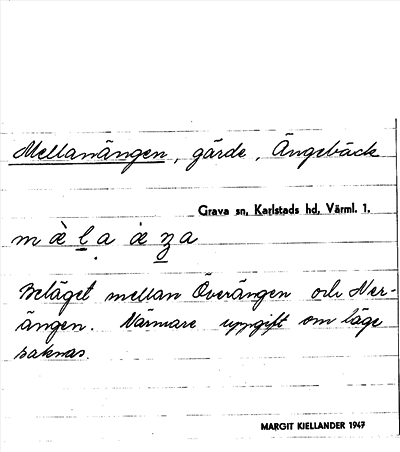 Mellanängen, gärde, Ängebäck
Grava sn, Karlstads hd, Värml. 1.
Beläget mellan Överängen och Ner-
ängen. Närmare uppgift om läge
saknas.
MARGIT KIELLANDER 1947